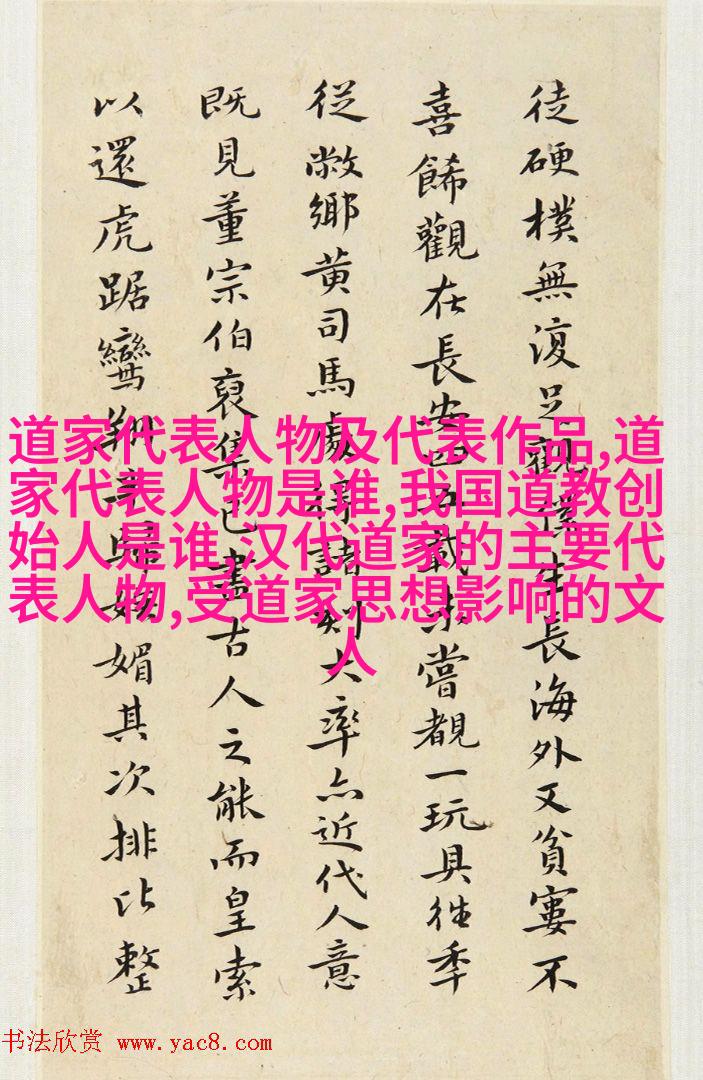 徒硬樸無復足觀僕生長海外又貧窶不
喜餙觀在長安四五載未嘗覩一玩具往年
從敝鄉黃司馬處得諸刻大率亦近代人意
既見董宗伯裒集已盡古人之能而皇索
以還虎踞鸞翔媚其次排比整
道家代表人物及代表作品,道
家代表人物是谁,我国道教创
始人是谁,汉代道家的主要代
表人物,受道家思想影响的文
人
书法欣赏 www.yac8.com